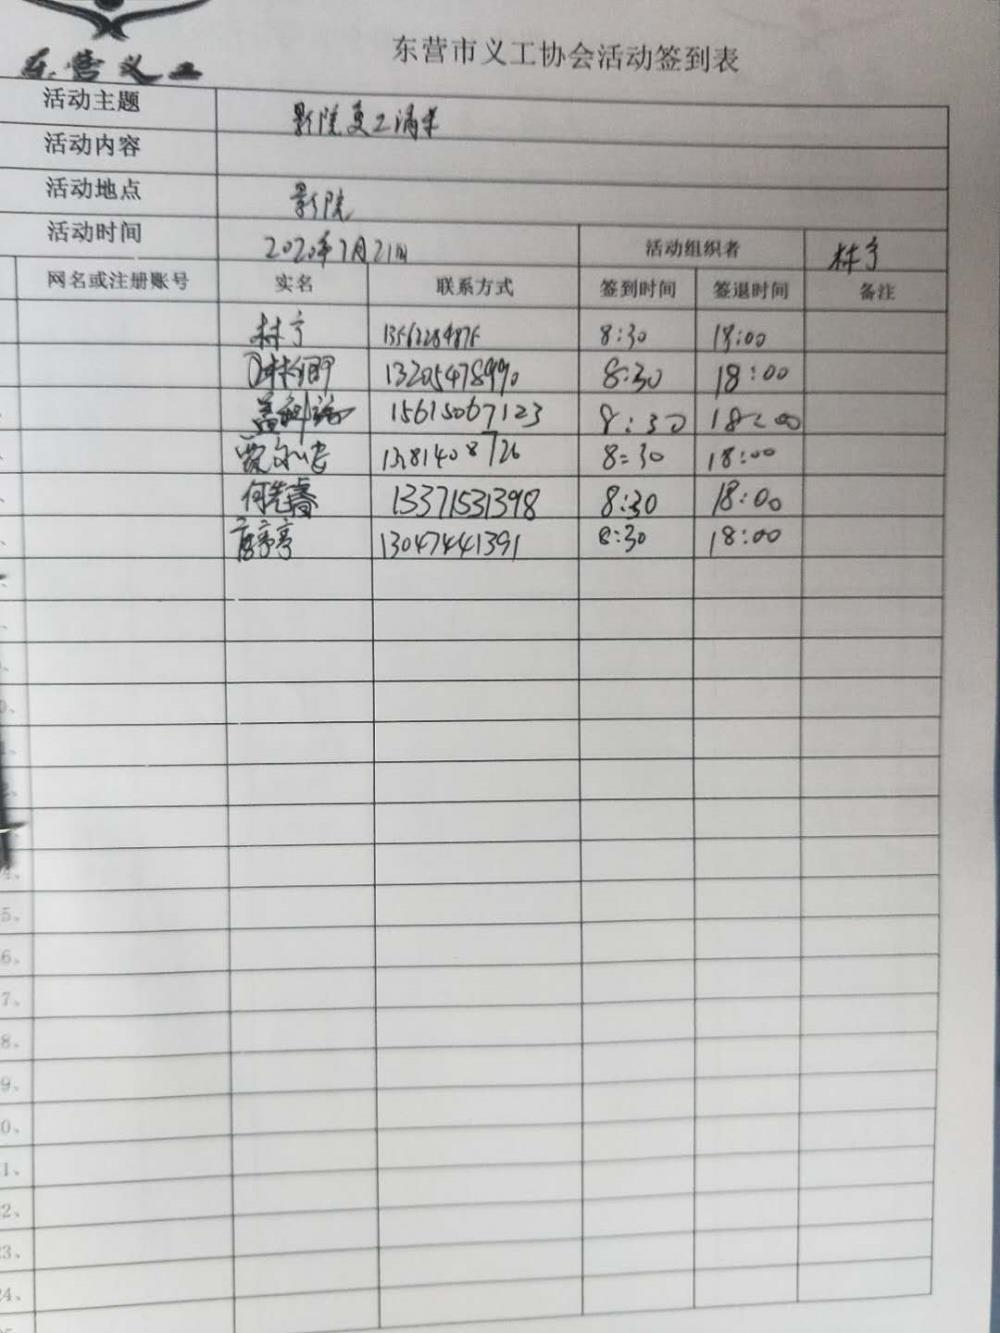 东营义工
东营市义工协会活动签到表
活动主题 影院复工清洁
活动内容
活动地点 影院
活动时间 2020年7月21日 活动组织者 林宁
网名或注册账号 实名 联系方式 签到时间 签退时间 备注
林宁 8:30 18:00
13205478990 8:30 18:00
15615067123 8:30 18:00
1381408726 8:30 18:00
何先睿 13371531398 8:30 18:00
13047441391 8:30 18:00
5、
6、
7、
8、
9、
0、
1、
2、
3、
4、